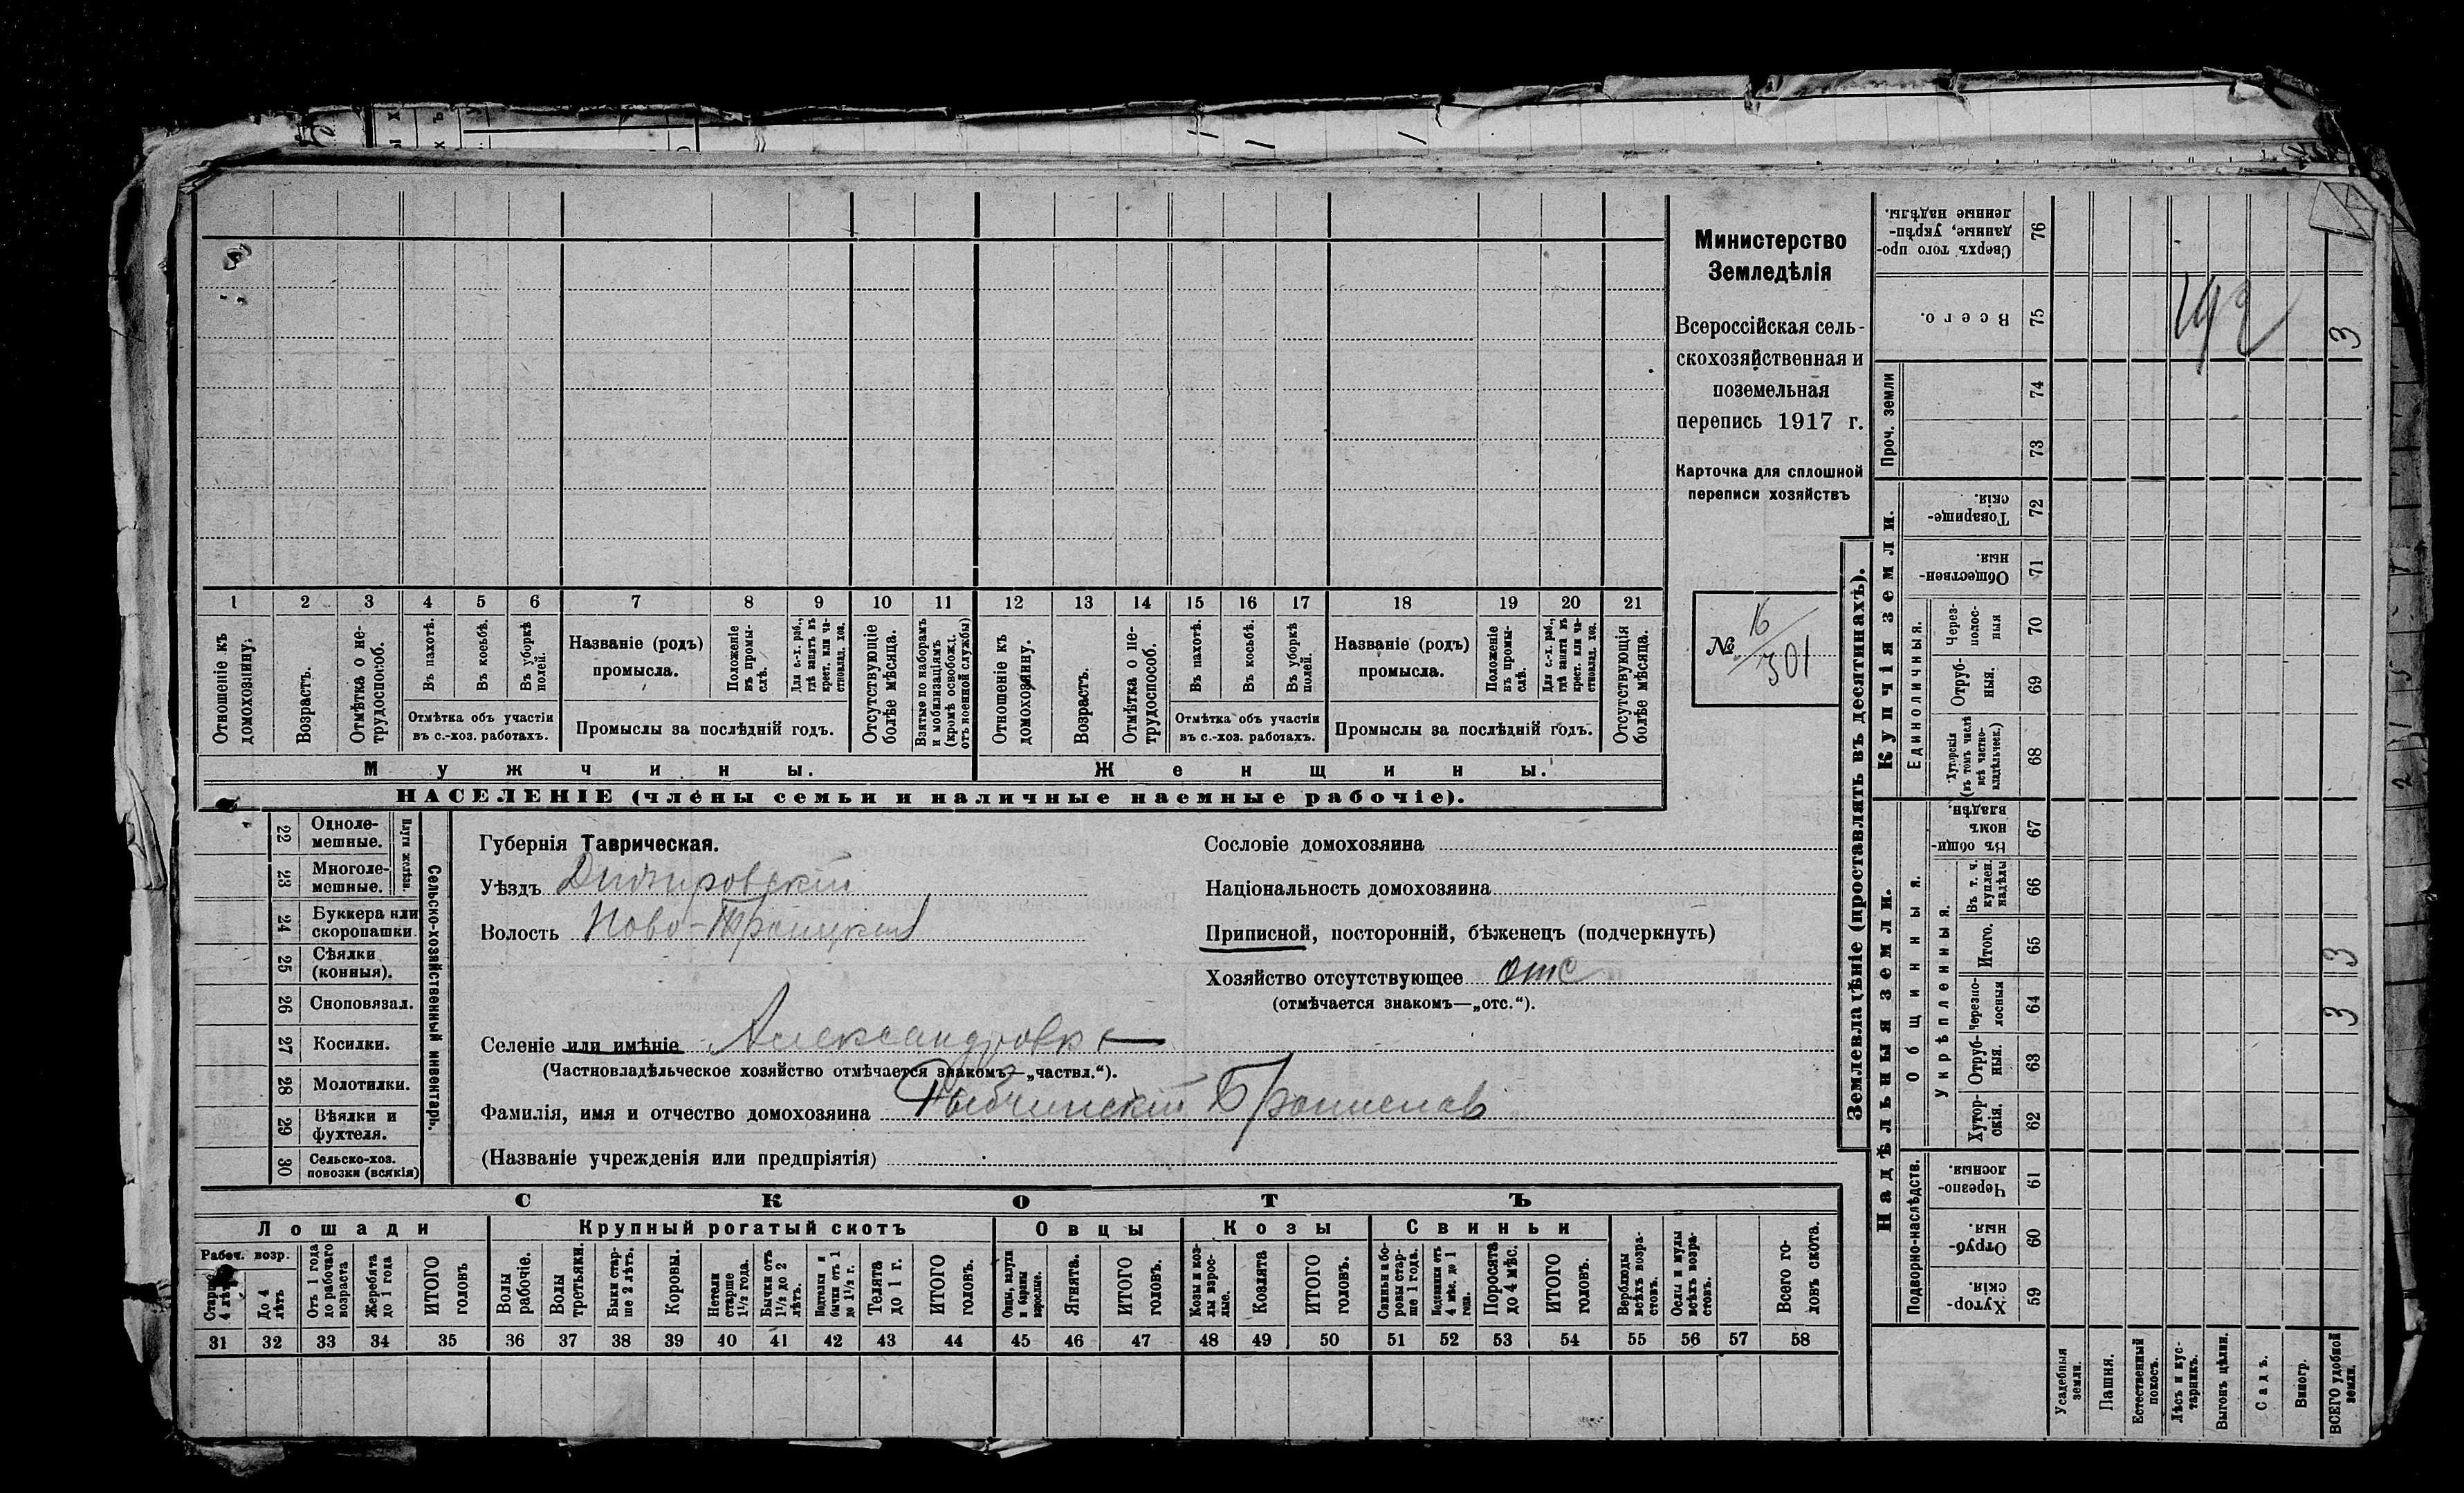 Министерство
Земледѣлія
Всероссійская сель-
скохозяйственная и
поземельная
перепись 1917 г.
Карточка для сплошной
переписи хозяйствъ
№ 16/301
1 2 3 4 5 6 7 8 9 10 11 12 13 14 15 16 17 18 19 20 21
Отношеніе къ домохозяину.
Возрастъ.
Отмѣтка о не-трудоспособ.
Въ пахотѣ.
Въ косьбѣ.
Въ уборкѣ полей.
Отмѣтка объ участіи
въ с.-хоз. работахъ.
Названіе (родъ)
промысла.
Положеніе въ промы-слѣ.
Для с.-х. раб., гдѣ занятъ въ крест. или ча-стновлад. хоз.
Промыслы за послѣдній годъ.
Отсутствующіе болѣе мѣсяца.
Взятые по наборамъ и мобилизаціямъ (кромѣ освобожд. отъ военной службы)
Отношеніе къ домохозяину.
Возрастъ.
Отмѣтка о не-трудоспособ.
Въ пахотѣ.
Въ косьбѣ.
Въ уборкѣ полей.
Отмѣтка объ участіи
въ с.-хоз. работахъ.
Названіе (родъ)
промысла.
Положеніе въ промы-слѣ.
Для с.-х. раб., гдѣ занятъ въ крест. или ча-стновлад. хоз.
Промыслы за послѣдній годъ.
Отсутствующія болѣе мѣсяца.
Мужчины. Женщины.
НАСЕЛЕНІЕ (члены семьи и наличные наемные рабочіе).
22 Одноле-мешные.
23 Многоле-мешные.
Плуги желѣз.
24 Буккера или скоропашки.
25 Сѣялки (конныя).
26 Сноповязал.
27 Косилки.
28 Молотилки.
29 Вѣялки и фухтеля.
30 Сельско-хоз. повозки (всякія)
Сельско-хозяйственный инвентарь.
Губернія Таврическая.
Уѣздъ Днѣпровскій
Волость Ново-Троицкая
Сословіе домохозяина
Національность домохозяина
Приписной, посторонній, бѣженецъ (подчеркнуть)
Хозяйство отсутствующее отс
(отмѣчается знакомъ—„отс.“).
Селеніе или имѣніе Александровка
(Частновладѣльческое хозяйство отмѣчается знакомъ—„частвл.“).
Фамилія, имя и отчество домохозяина Рыбчинскій Брониславъ
(Названіе учрежденія или предпріятія)
СКОТЪ
Лошади Крупный рогатый скотъ Овцы Козы Свиньи
Рабоч. возр.
Старше 4 лѣтъ
До 4 лѣтъ
Отъ 1 года до рабочаго возраста
Жеребята до 1 года
ИТОГО головъ
Волы рабочіе.
Волы третьяки.
Быки стар-ше 2 лѣтъ.
Коровы.
Нетели старше 1½ года.
Бычки отъ 1½ до 2 лѣтъ.
Телята до 1 г.
ИТОГО головъ.
Овцы, валухи и бараны взрослые.
Ягнята.
ИТОГО головъ.
Козы и коз-лы взрос-лые.
Козлята
ИТОГО головъ.
Свиньи и бо-ровы стар-ше 1 года.
Подсвинки отъ 4 мѣс. до 1 года.
Поросята до 4 мѣс.
ИТОГО головъ.
Верблюды всѣхъ возра-стовъ.
Ослы и мулы всѣхъ возра-стовъ.
Всего го-ловъ скота.
31 32 33 34 35 36 37 38 39 40 41 42 43 44 45 46 47 48 49 50 51 52 53 54 55 56 57 58
Землевладѣніе (проставлять въ десятинахъ).
Сверхъ того про-данные, укрѣп-ленные надѣлы. 76
Всего. 75 3
Проч. земли 74 73
Купчія земли.
Товарище-скія. 72
Обществен-ныя. 71
Единоличныя.
Через-полос-ныя 70
Отруб-ныя. 69
Хуторскія (въ томъ числѣ всѣ частно-владѣльческ.) 68
Надѣльныя земли.
Общинныя.
Въ общи-номъ владѣн. 67
Укрѣпленныя.
Въ т. ч. куплен. надѣлы 66
Итого. 65 3
Черезпо-лосныя 64 3
Отруб-ныя. 63
Хутор-скія. 62
Подворно-наслѣдств.
Черезпо-лосныя 61
Отруб-ныя. 60
Хутор-скія. 59
Усадебныя земли.
Пашня.
Естественный покосъ.
Лѣсъ и кус-тарникъ.
Выгонъ цѣлин.
Садъ.
Виногр.
ВСЕГО удобной земли.